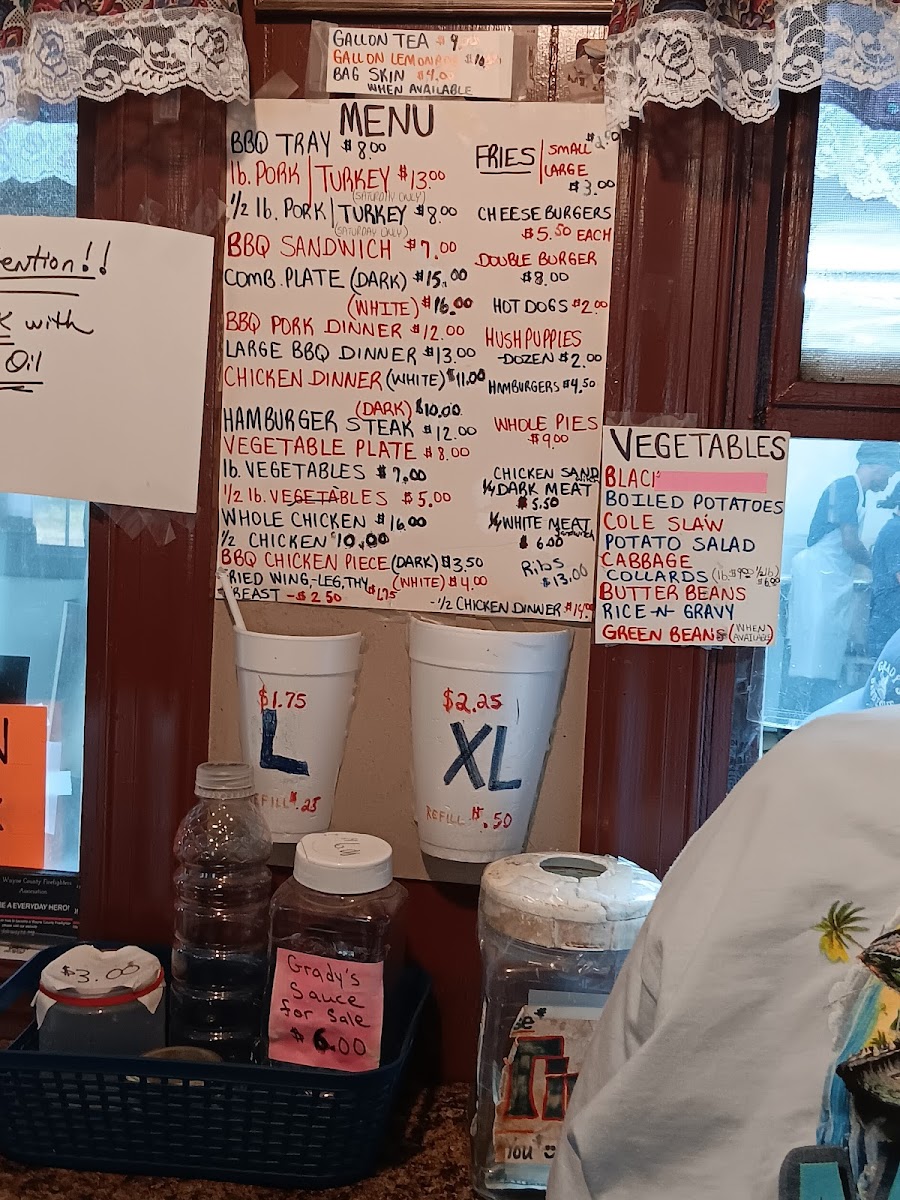 GALLON TEA $9
GALLON LEMONADE $10.50
BAG SKIN $4.00
WHEN AVAILABLE
MENU
BBQ TRAY $8.00
lb. PORK | TURKEY $13.00
(SATURDAY ONLY)
1/2 lb. PORK | TURKEY $8.00
(SATURDAY ONLY)
BBQ SANDWICH $7.00
COMB. PLATE (DARK) $15.00
(WHITE) $16.00
BBQ PORK DINNER $12.00
LARGE BBQ DINNER $13.00
CHICKEN DINNER (WHITE) $11.00
(DARK) $10.00
HAMBURGER STEAK $12.00
VEGETABLE PLATE $8.00
lb. VEGETABLES $7.00
1/2 lb. VEGETABLES $5.00
WHOLE CHICKEN $16.00
1/2 CHICKEN $10.00
BBQ CHICKEN PIECE (DARK) $3.50
(WHITE) $4.00
FRIED WING, LEG, THY $1.75
BREAST - $2.50
- 1/2 CHICKEN DINNER $14.00
FRIES | SMALL
LARGE
$3.00
CHEESEBURGERS
$5.50 EACH
DOUBLE BURGER
$8.00
HOT DOGS $2.00
HUSHPUPPIES
-DOZEN $2.00
HAMBURGERS $4.50
WHOLE PIES
$9.00
CHICKEN SANDWICH
1/4 DARK MEAT
$5.50
1/4 WHITE MEAT
SANDWICH
$6.00
RIBS
$13.00
VEGETABLES
BLAC
BOILED POTATOES
COLE SLAW
POTATO SALAD
CABBAGE
COLLARDS (lb. $9.00 1/2 lb. $6.00)
BUTTER BEANS
RICE -N- GRAVY
GREEN BEANS (WHEN AVAILABLE)
ention!!
with
Oil
$1.75
L
REFILL $.25
$2.25
XL
REFILL $.50
Wayne County Firefighters
Association
E A EVERYDAY HERO!
$3.00
Grady's
Sauce
for Sale
$6.00
You